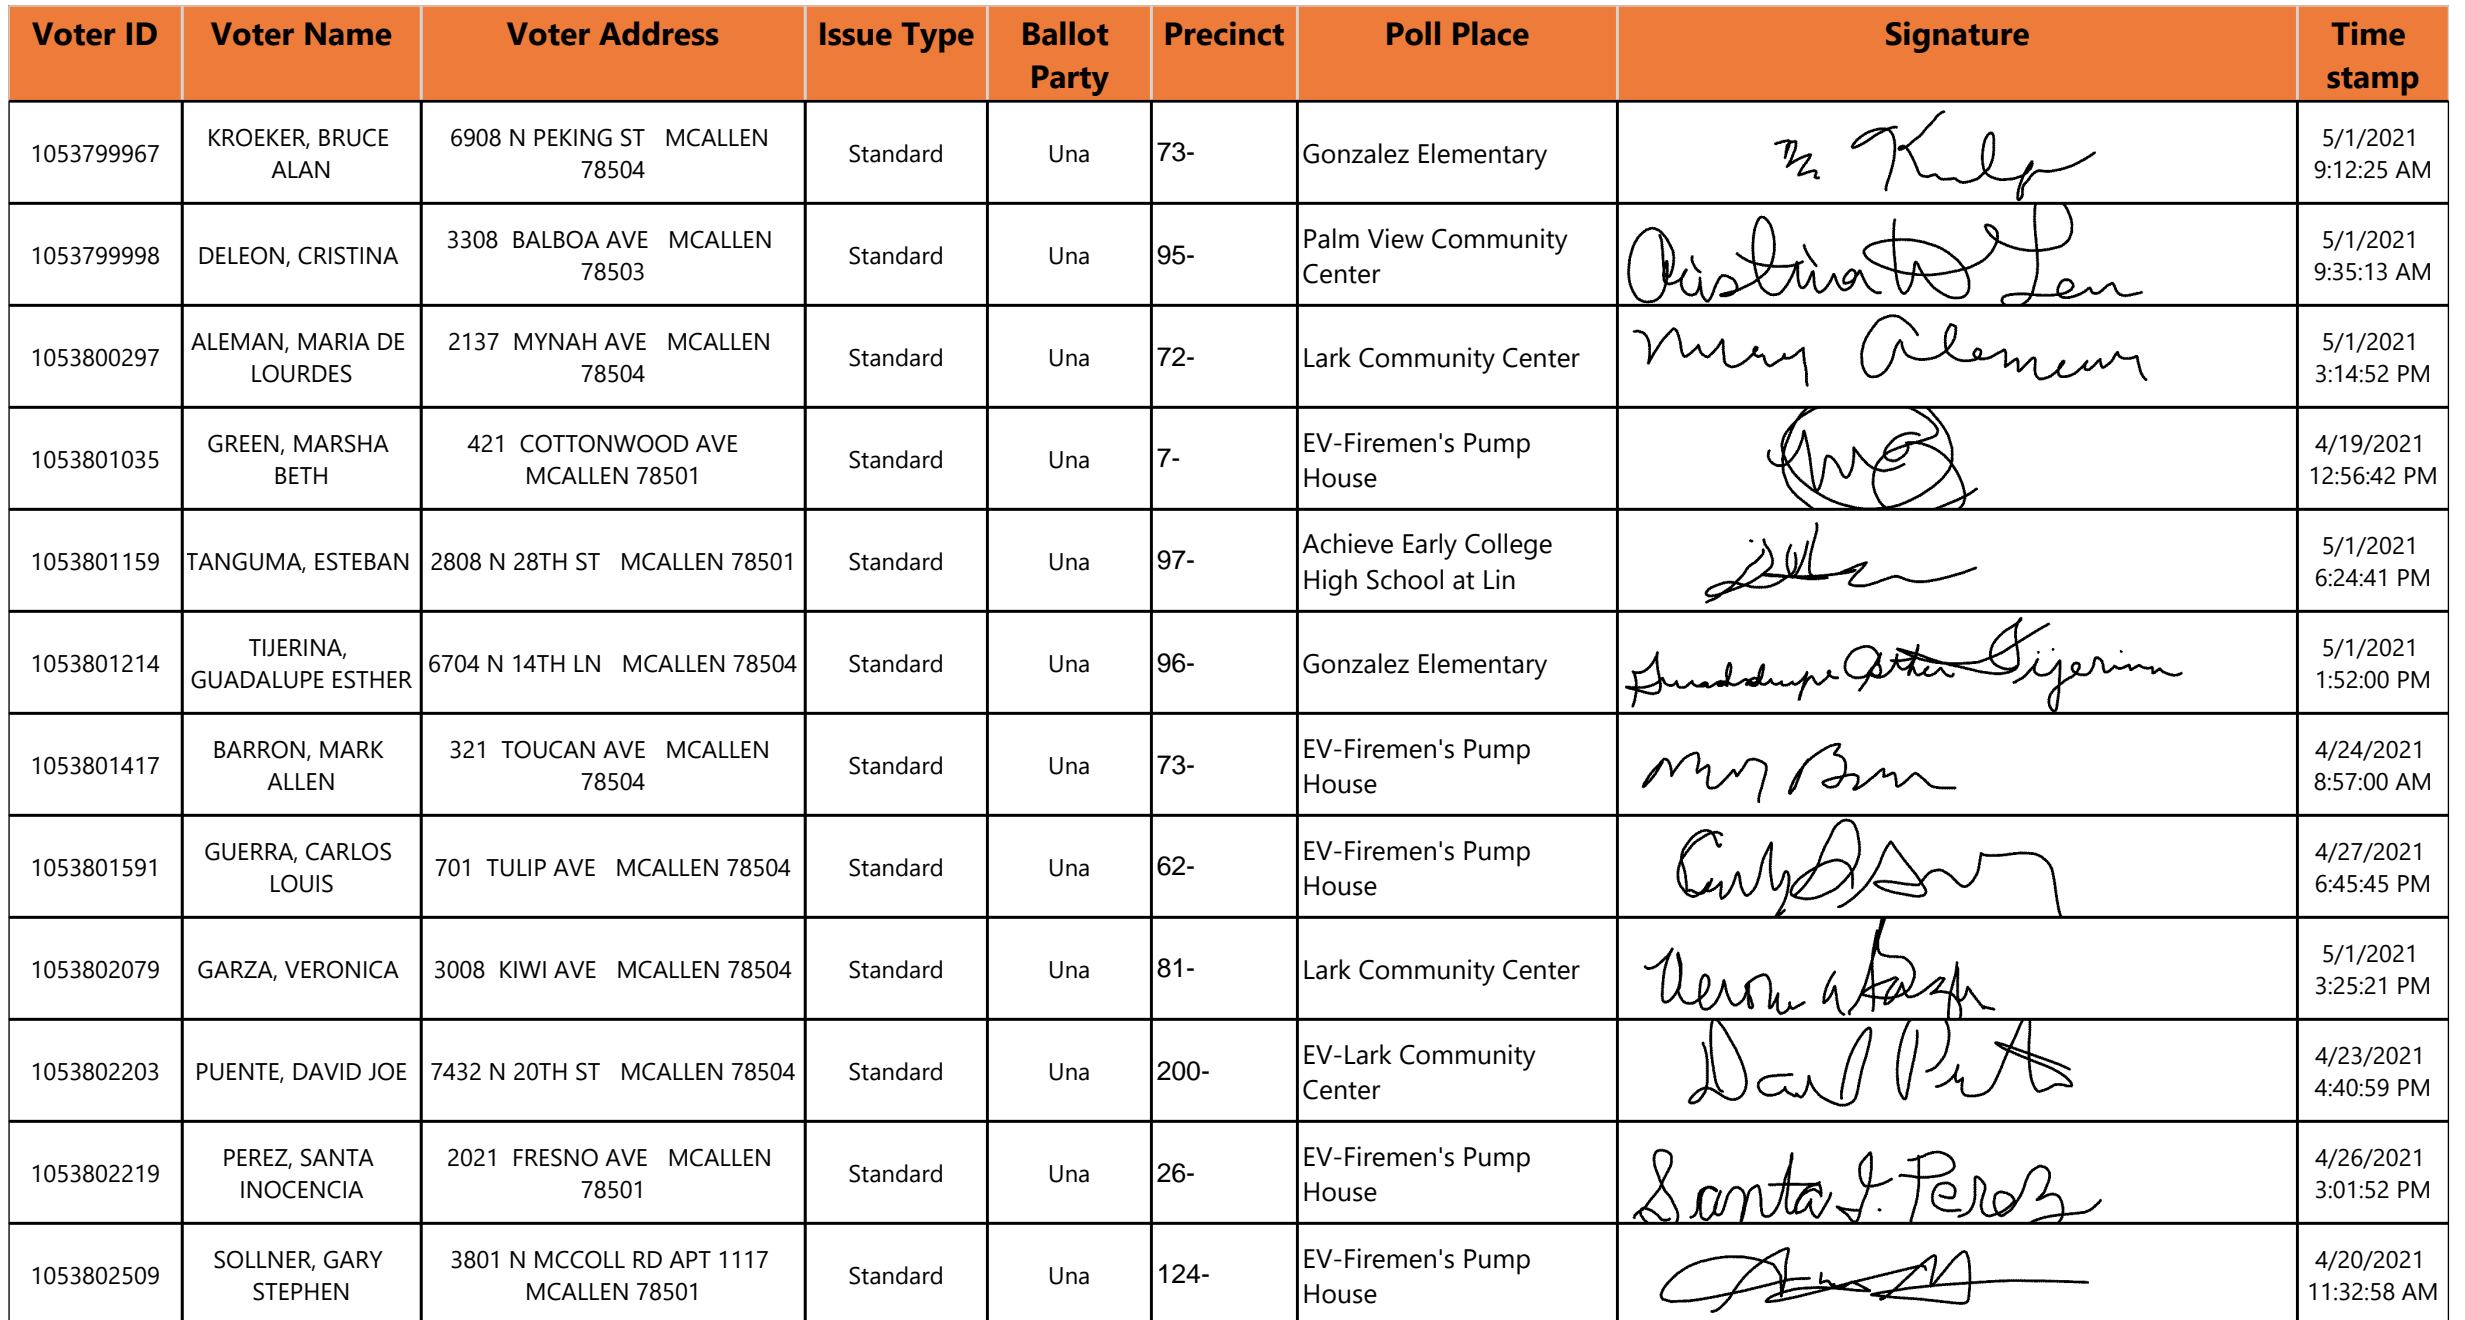 Voter ID Voter Name Voter Address Issue Type Ballot Party Precinct Poll Place Signature Time stamp
1053799967 KROEKER, BRUCE ALAN 6908 N PEKING ST MCALLEN 78504 Standard Una 73- Gonzalez Elementary 5/1/2021 9:12:25 AM
1053799998 DELEON, CRISTINA 3308 BALBOA AVE MCALLEN 78503 Standard Una 95- Palm View Community Center Cristina D Leon 5/1/2021 9:35:13 AM
1053800297 ALEMAN, MARIA DE LOURDES 2137 MYNAH AVE MCALLEN 78504 Standard Una 72- Lark Community Center Aleman 5/1/2021 3:14:52 PM
1053801035 GREEN, MARSHA BETH 421 COTTONWOOD AVE MCALLEN 78501 Standard Una 7- EV-Firemen's Pump House 4/19/2021 12:56:42 PM
1053801159 TANGUMA, ESTEBAN 2808 N 28TH ST MCALLEN 78501 Standard Una 97- Achieve Early College High School at Lin 5/1/2021 6:24:41 PM
1053801214 TIJERINA, GUADALUPE ESTHER 6704 N 14TH LN MCALLEN 78504 Standard Una 96- Gonzalez Elementary Guadalupe Esther Tijerina 5/1/2021 1:52:00 PM
1053801417 BARRON, MARK ALLEN 321 TOUCAN AVE MCALLEN 78504 Standard Una 73- EV-Firemen's Pump House 4/24/2021 8:57:00 AM
1053801591 GUERRA, CARLOS LOUIS 701 TULIP AVE MCALLEN 78504 Standard Una 62- EV-Firemen's Pump House 4/27/2021 6:45:45 PM
1053802079 GARZA, VERONICA 3008 KIWI AVE MCALLEN 78504 Standard Una 81- Lark Community Center Veronica Garza 5/1/2021 3:25:21 PM
1053802203 PUENTE, DAVID JOE 7432 N 20TH ST MCALLEN 78504 Standard Una 200- EV-Lark Community Center 4/23/2021 4:40:59 PM
1053802219 PEREZ, SANTA INOCENCIA 2021 FRESNO AVE MCALLEN 78501 Standard Una 26- EV-Firemen's Pump House Santa I. Perez 4/26/2021 3:01:52 PM
1053802509 SOLLNER, GARY STEPHEN 3801 N MCCOLL RD APT 1117 MCALLEN 78501 Standard Una 124- EV-Firemen's Pump House 4/20/2021 11:32:58 AM